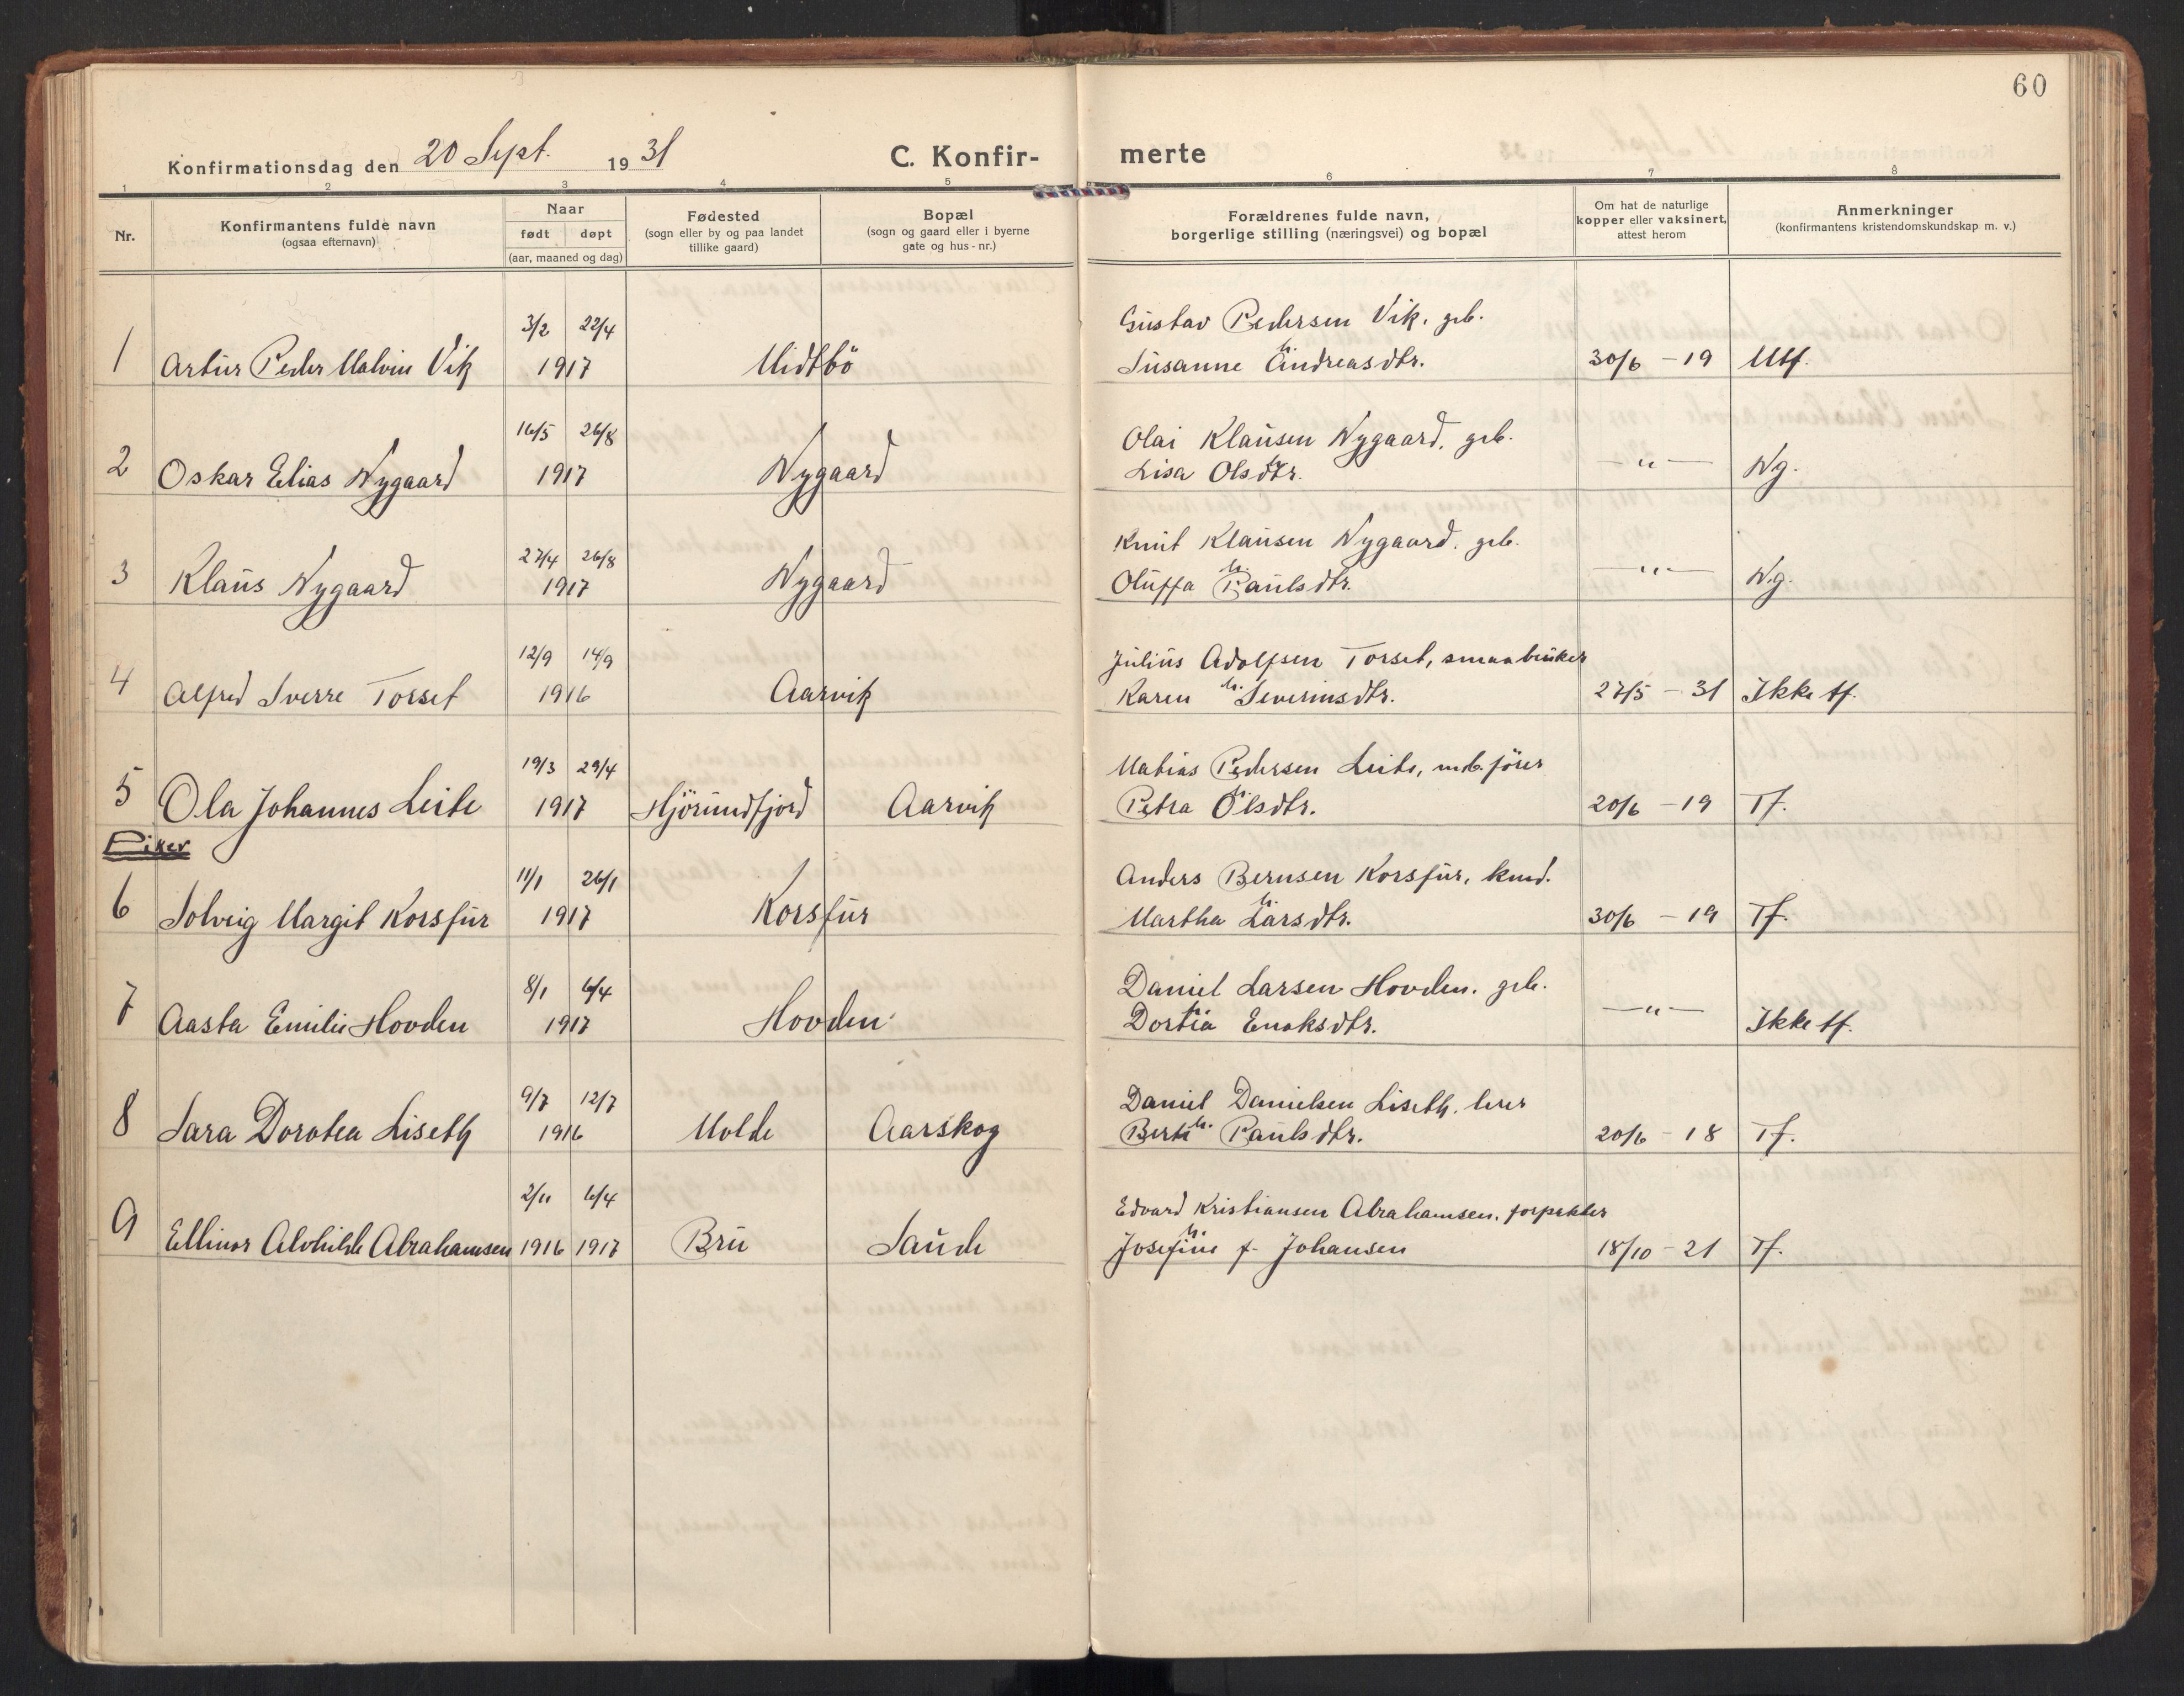 60
Konfirmationsdag den 20 Sept. 1931
C. Konfirmerte
1 2 3 4 5 6 7 8
Nr. | Konfirmantens fulde navn (ogsaa efternavn) | Naar født døpt (aar, maaned og dag) | Fødested (sogn eller by og paa landet tillike gaard) | Bopæl (sogn og gaard eller i byerne gate og hus-nr.) | Forældrenes fulde navn, borgerlige stilling (næringsvei) og bopæl | Om hat de naturlige kopper eller vaksinert, attest herom | Anmerkninger (konfirmantens kristendomskundskap m. v.)
3/2 22/4 Gustav Pedersen Vik, gb.
1 Artur Peder Malvin Vik 1917 Midtbö Susanne Andreasdtr. 30/6 - 19 Mtf.
16/5 26/8 Olai Klausen Nygaard, gb.
2 Oskar Elias Nygaard 1917 Nygaard Lisa Olsdtr. — " — Ng.
27/4 26/8 Knut Klausen Nygaard, gb.
3 Klaus Nygaard 1917 Nygaard Oluffa h. Paulsdtr. — " — Ng.
12/9 14/9 Julius Adolfsen Torset, smaabruker
4 Alfred Sverre Torset 1916 Aarvik Karen h. Severinsdtr. 27/5 - 31 Ikke tf.
19/3 29/4 Matias Pedersen Leite, mb. förer
5 Ola Johannes Leite 1917 Hjörundfjord Aarvik Petra h. Olsdtr. 20/6 - 19 Tf.
Piker
11/1 26/1 Anders Bernsen Korsfur, kmd.
6 Solveig Margit Korsfur 1917 Korsfur Martha h. Larsdtr. 30/6 - 19 Tf.
8/1 6/4 Daniel Larsen Hovden, gb.
7 Aasta Emilie Hovden 1917 Hovden Dortia Enoksdtr. — " — Ikke tf.
9/7 12/7 Daniel Danielsen Liseth, lærer
8 Sara Dorotea Liseth 1916 Molde Aarskog Berte h. Paulsdtr. 20/6 - 18 Tf.
2/11 6/4 Edvard Kristiansen Abrahamsen, forpakter
9 Ellinor Alvhilde Abrahamsen 1916 1917 Bru Saude Josefine h. f. Johansen 18/10 - 21 Tf.